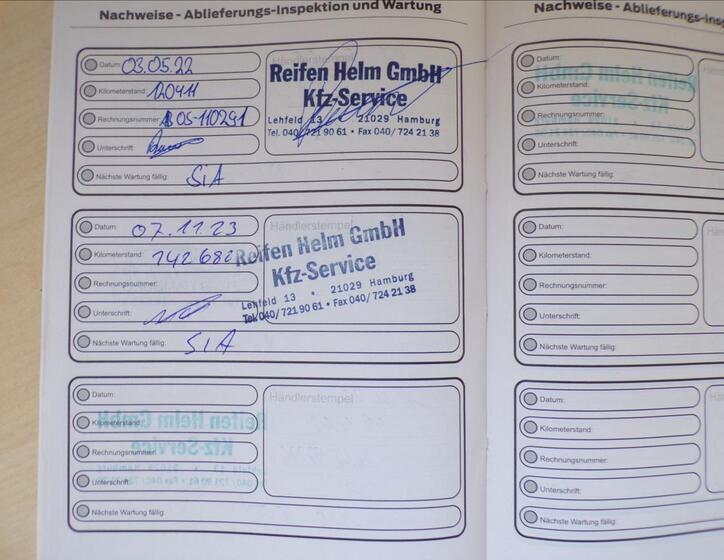 Nachweise - Ablieferungs-Inspektion und Wartung
Datum: 03.05.22
Kilometerstand: 120911
Rechnungsnummer: 05-110291
Unterschrift:
Nächste Wartung fällig: SIA
Händlerstempel
Reifen Helm GmbH
Kfz-Service
Lehfeld 13 • 21029 Hamburg
Tel. 040/721 90 61 • Fax 040/724 21 38
Datum: 07.11.23
Kilometerstand: 142 680
Rechnungsnummer:
Unterschrift:
Nächste Wartung fällig: SIA
Händlerstempel
Reifen Helm GmbH
Kfz-Service
Lehfeld 13 • 21029 Hamburg
Tel. 040/721 90 61 • Fax 040/724 21 38
Datum:
Kilometerstand:
Rechnungsnummer:
Unterschrift:
Nächste Wartung fällig:
Händlerstempel
Nachweise - Ablieferungs-Insp
Datum:
Kilometerstand:
Rechnungsnummer:
Unterschrift:
Nächste Wartung fällig:
Datum:
Kilometerstand:
Rechnungsnummer:
Unterschrift:
Nächste Wartung fällig:
Datum:
Kilometerstand:
Rechnungsnummer:
Unterschrift:
Nächste Wartung fällig: